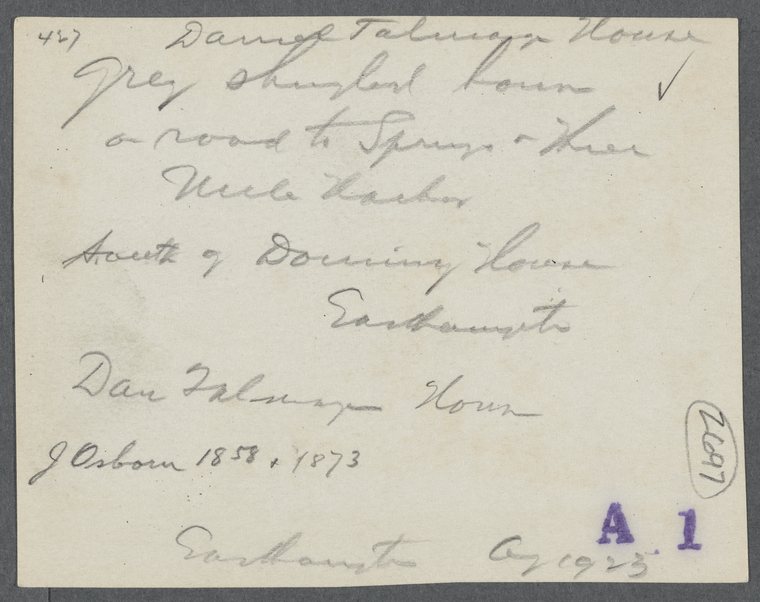 427 Daniel Talmage House
Grey shingled house
on road to Springs & Three
Mile Harbor
South of Dominy House
Easthampton
Dan Talmage House
J Osborn 1858 & 1873
2697
A 1
Easthampton Aug 1925